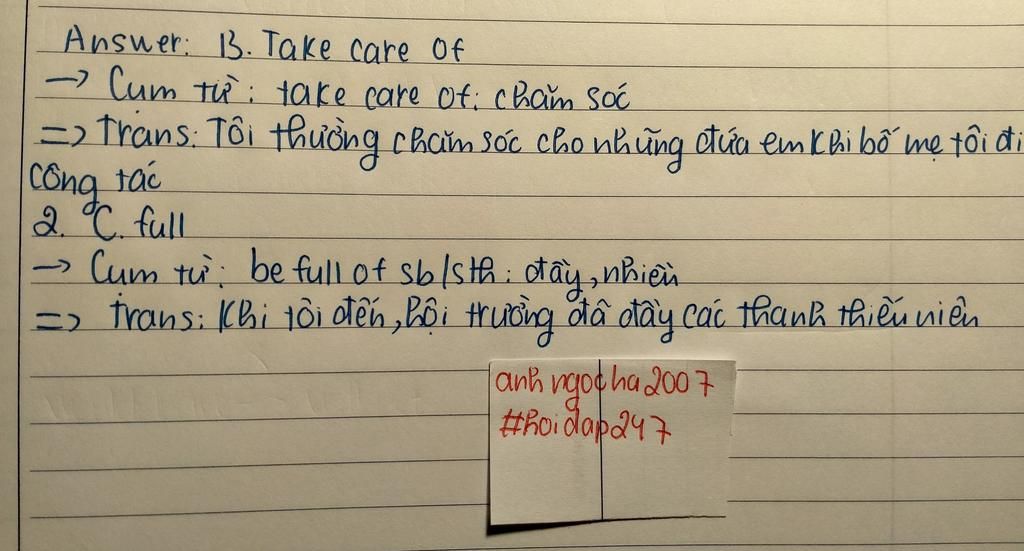 Answer: B. Take care of
→ Cụm từ: take care of: chăm sóc
=> Trans: Tôi thường chăm sóc cho những đứa em khi bố mẹ tôi đi
công tác
2. C. full
→ Cụm từ: be full of sb/sth: đầy, nhiều
=> Trans: Khi tôi đến, hội trường đã đầy các thanh thiếu niên
anh ngocha2007
#hoidap247